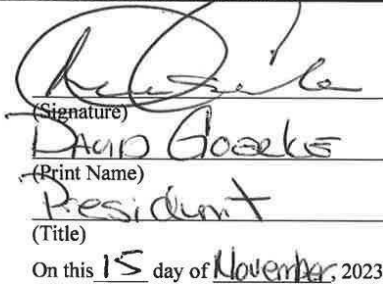 (Signature)
DAVID GOERKE
(Print Name)
President
(Title)
On this 15 day of November, 2023